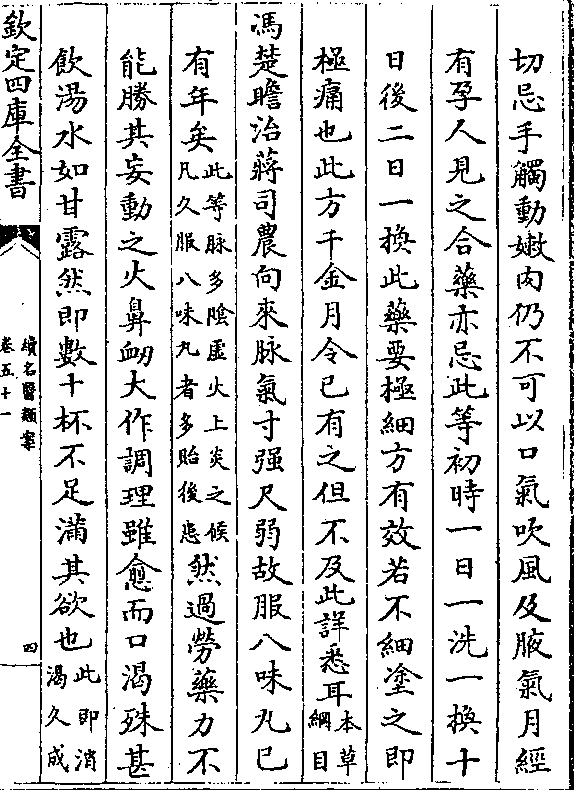 切忌手觸動嫩肉仍不可以口氣吹風及腋氣月經
有孕人見之合藥亦忌此等初時一日一洗一換十
日後二日一換此藥要極細方有效若不細塗之即
極痛也此方千金月令已有之但不及此詳悉耳本草綱目
馮楚瞻治蔣司農向來脉氣寸强尺弱故服八味丸已
有年矣此等脉多陰虛火上炎之候凡久服八味丸者多貽後患然過勞藥力不
能勝其妄動之火鼻衂大作調理雖愈而口渴殊甚
飲湯水如甘露然即數十杯不足滿其欲也此即消渴久成
欽定四庫全書
續名醫類案
卷五十一
四